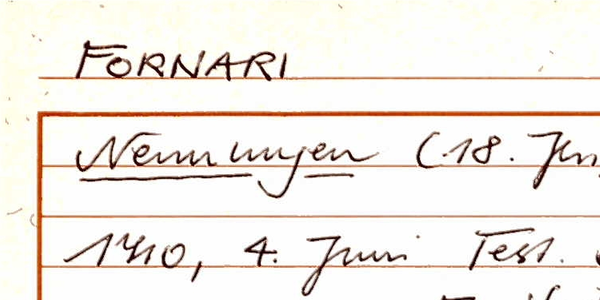 FORNARI
Nennungen (18. Jh
1710, 4. Juni Test.